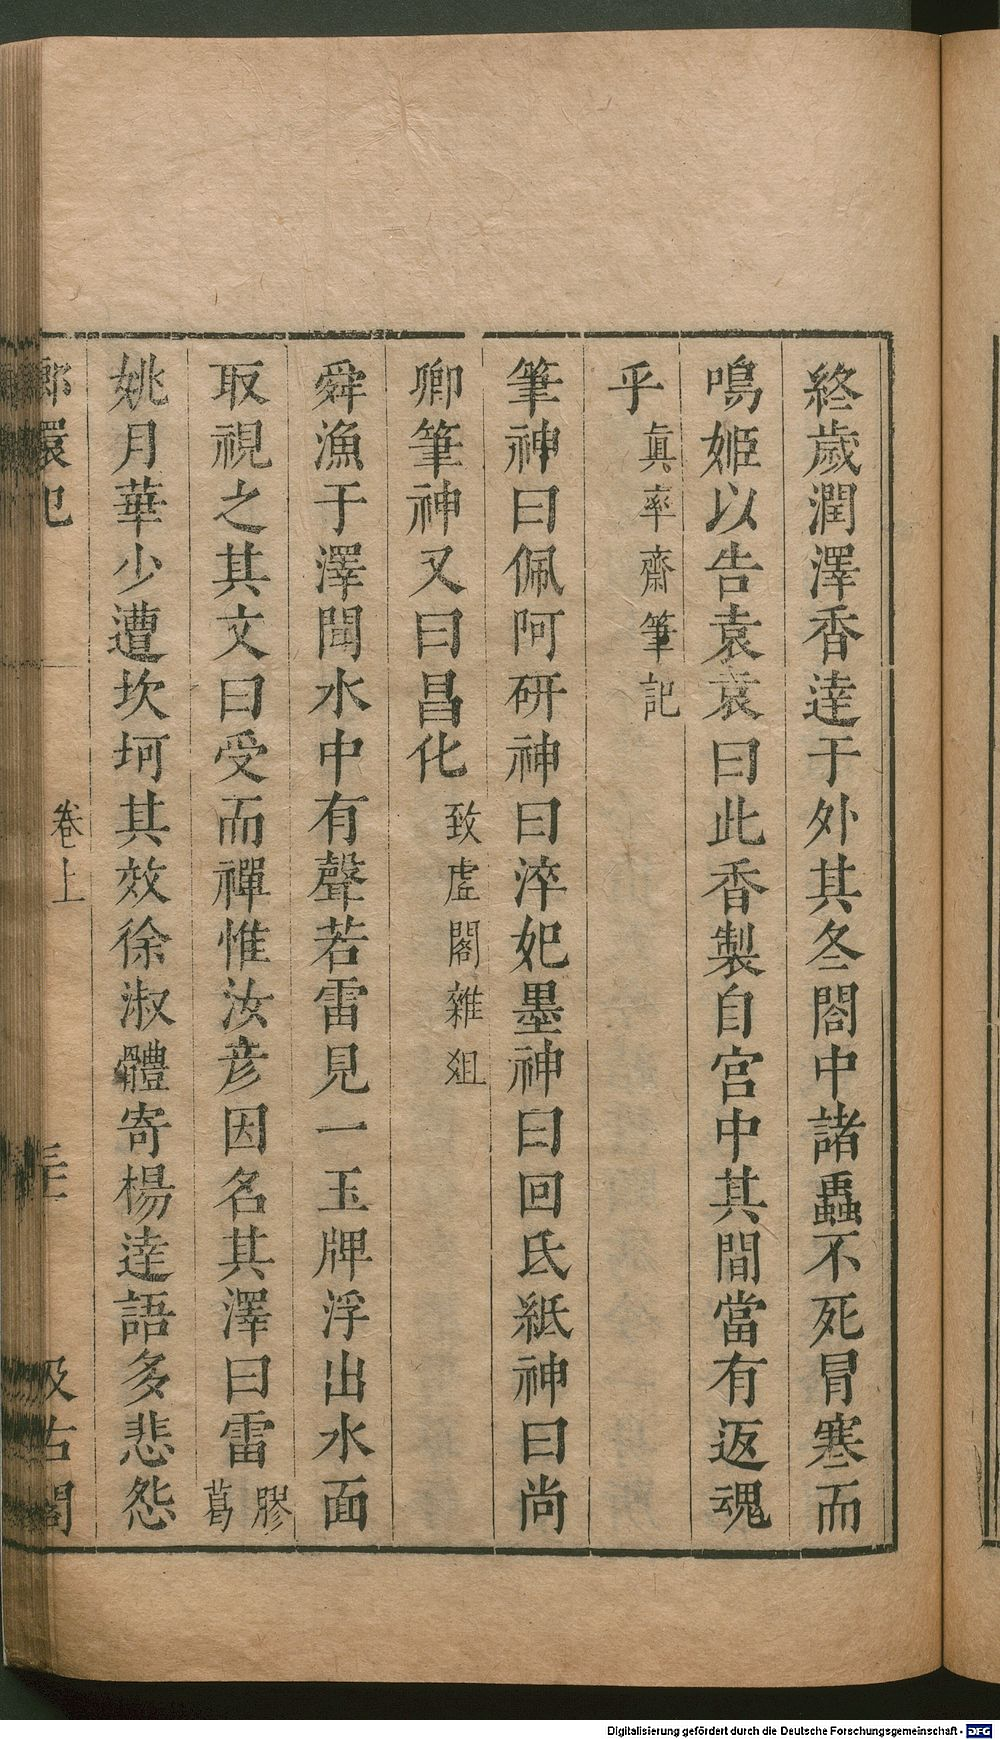 終歲潤澤香達于外其冬閤中諸蟲不死冐寒而
鳴姬以告袁袁曰此香製自宮中其間當有返魂
乎眞率齋筆記
筆神曰佩阿硏神曰淬妃墨神曰回氏紙神曰尚
卿筆神又曰昌化致虛閣雜俎
舜漁于澤聞水中有聲若雷見一玉牌浮出水面
取視之其文曰受而禪惟汝彦因名其澤曰雷膠葛
姚月華少遭坎坷其效徐淑體寄楊達語多悲怨
卷上
Digitalisierung gefördert durch die Deutsche Forschungsgemeinschaft - DFG